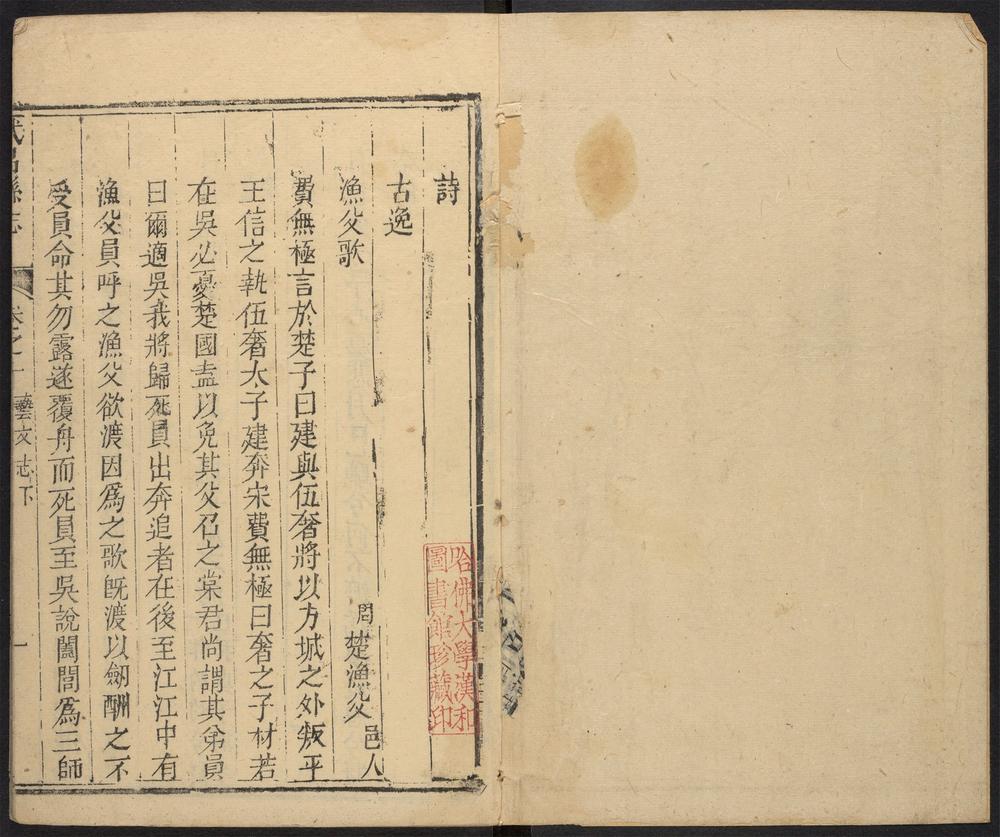 詩
古逸
漁父歌 周 楚漁父 邑人
費無極言於楚子曰建與伍奢將以方城之外叛平
王信之執伍奢大子建奔宋費無極曰奢之子材若
在吳必憂楚國盍以免其父召之棠君尚謂其弟員
曰爾適吳我將歸死員出奔追者在後至江江中有
漁父員呼之漁父欲渡因爲之歌旣渡以劒酬之不
受員命其勿露遂覆舟而死員至吳說闔閭爲三師
武昌縣志 卷之 藝文志下 一
哈佛大學漢和
圖書館珍藏印